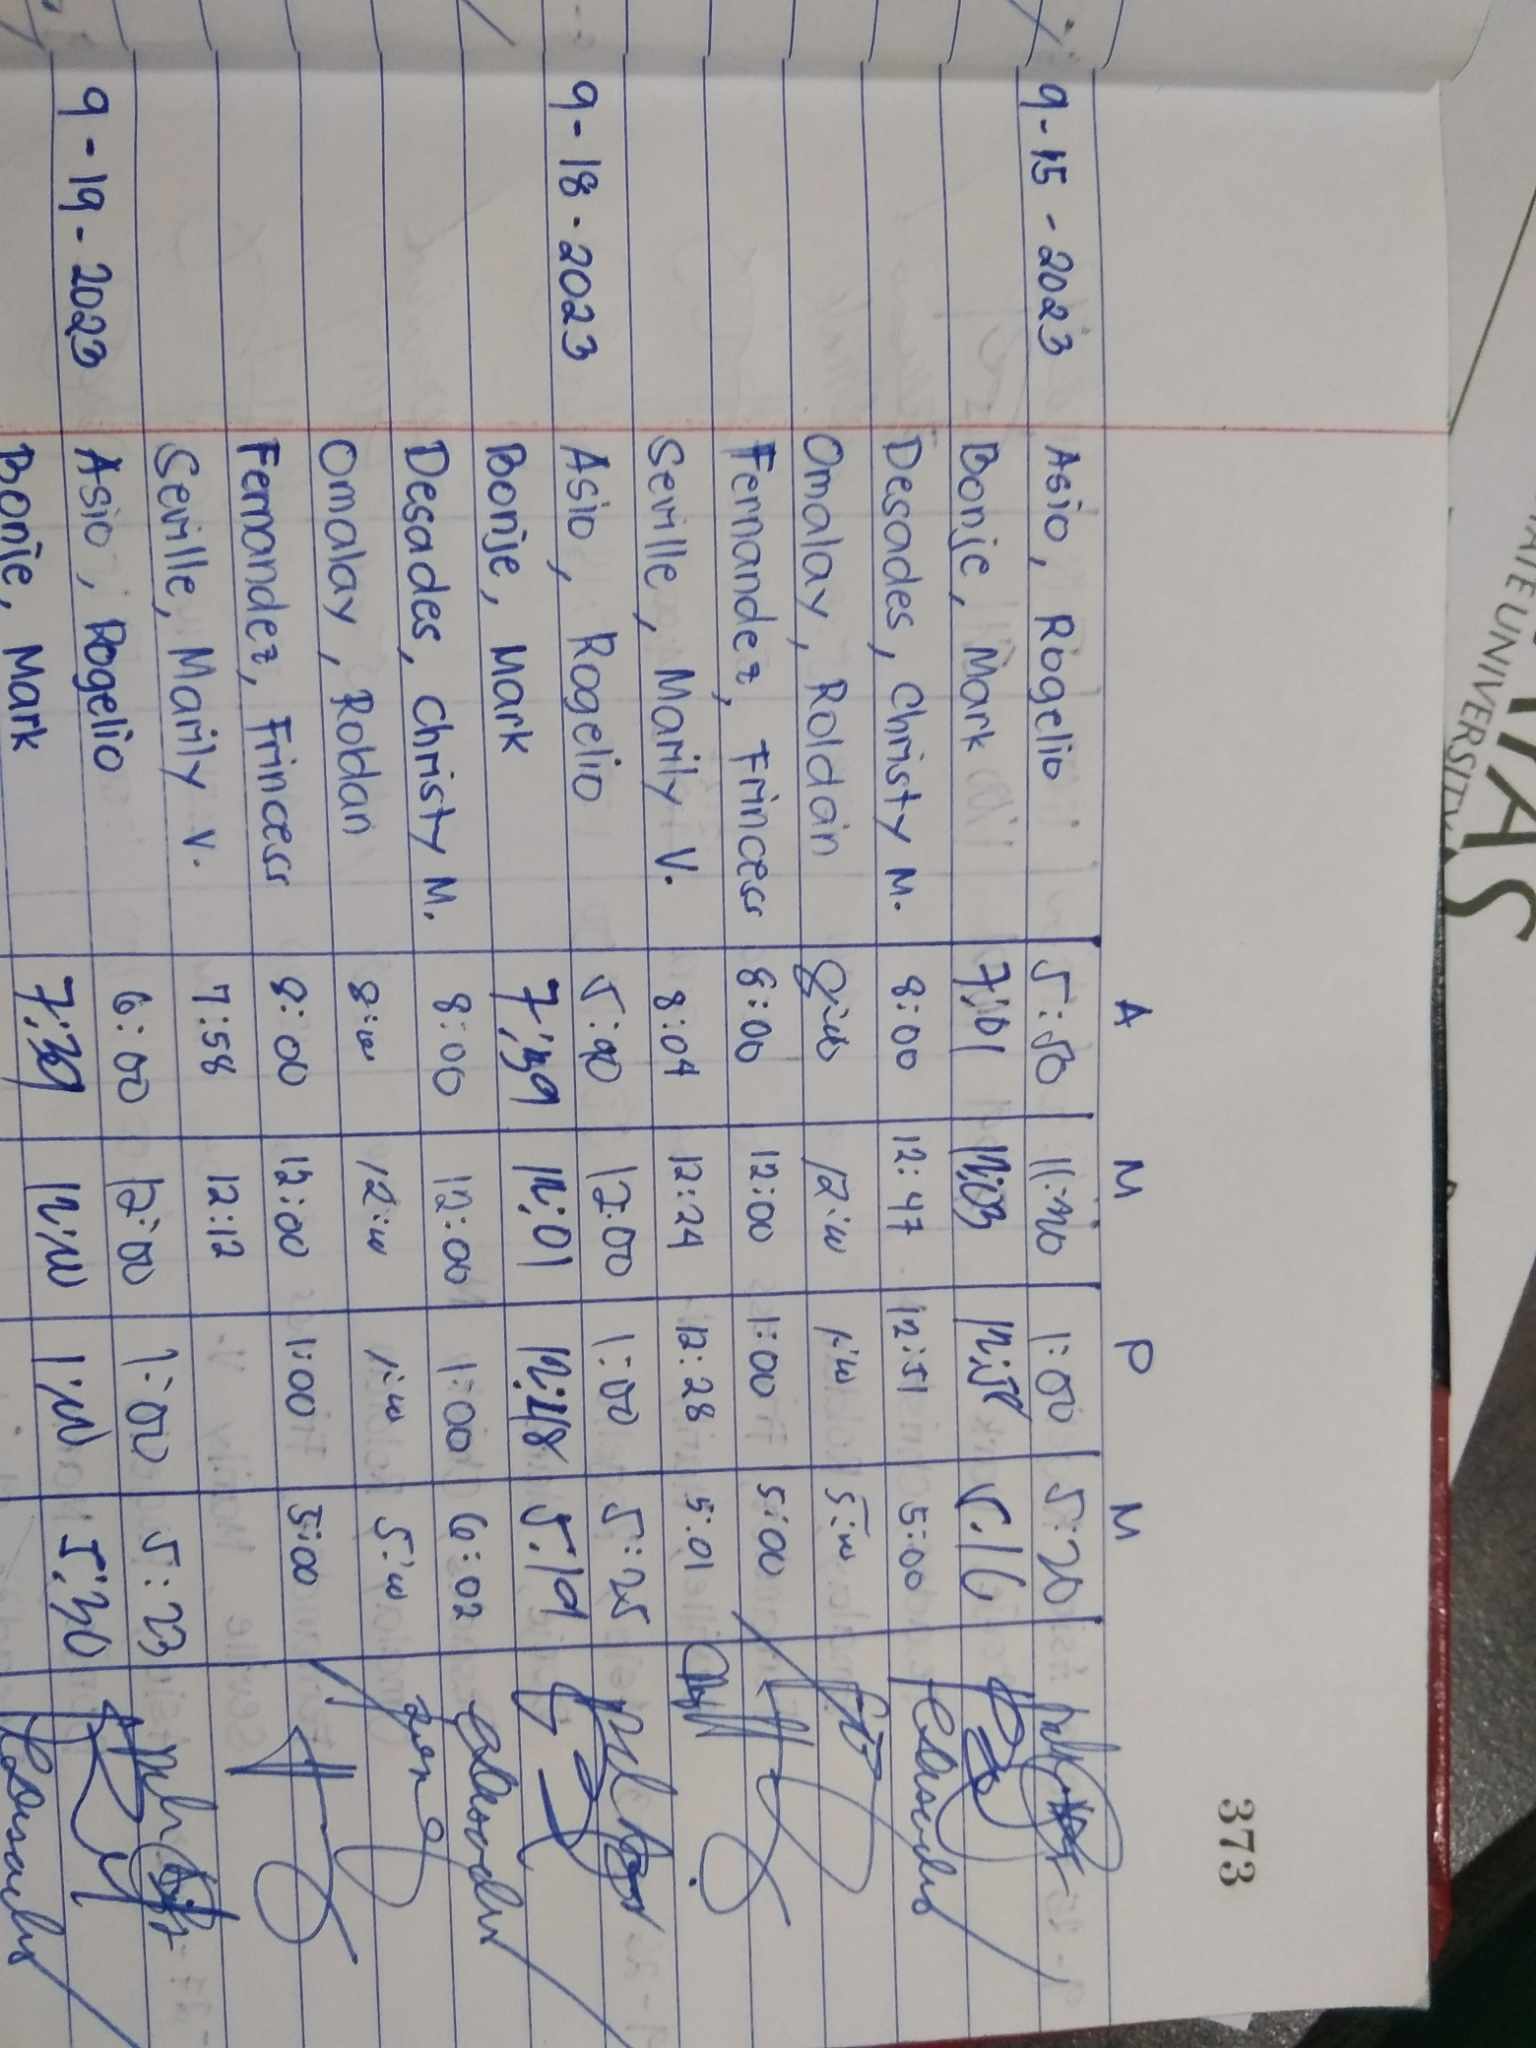 373
A M P M
9-15-2023 Asio, Rogelio 5:50 11:20 1:00 5:20
Bonje, Mark 7:01 12:03 12:58 5:16
Desades, Christy M. 8:00 12:47 12:51 5:00
Omalay, Roldan 8:00 12:00 1:00 5:00
Fernandez, Frincess 8:00 12:00 1:00 5:00
Seville, Marily V. 8:04 12:24 12:28 5:01
9-18-2023 Asio, Rogelio 12:00 1:00 5:25
Bonje, Mark 7:39 12:01 12:48 5:19
Desades, Christy M. 8:00 12:00 1:00 6:02
Omalay, Roldan 8:00 12:00 1:00 5:00
Fernandez, Frincess 8:00 12:00 1:00 5:00
Seville, Marily V. 7:58 12:12
9-19-2023 Asio, Rogelio 6:00 12:00 1:00 5:23
Bonje, Mark 7:39 12:00 1:00 5:30
UNIVERSITY